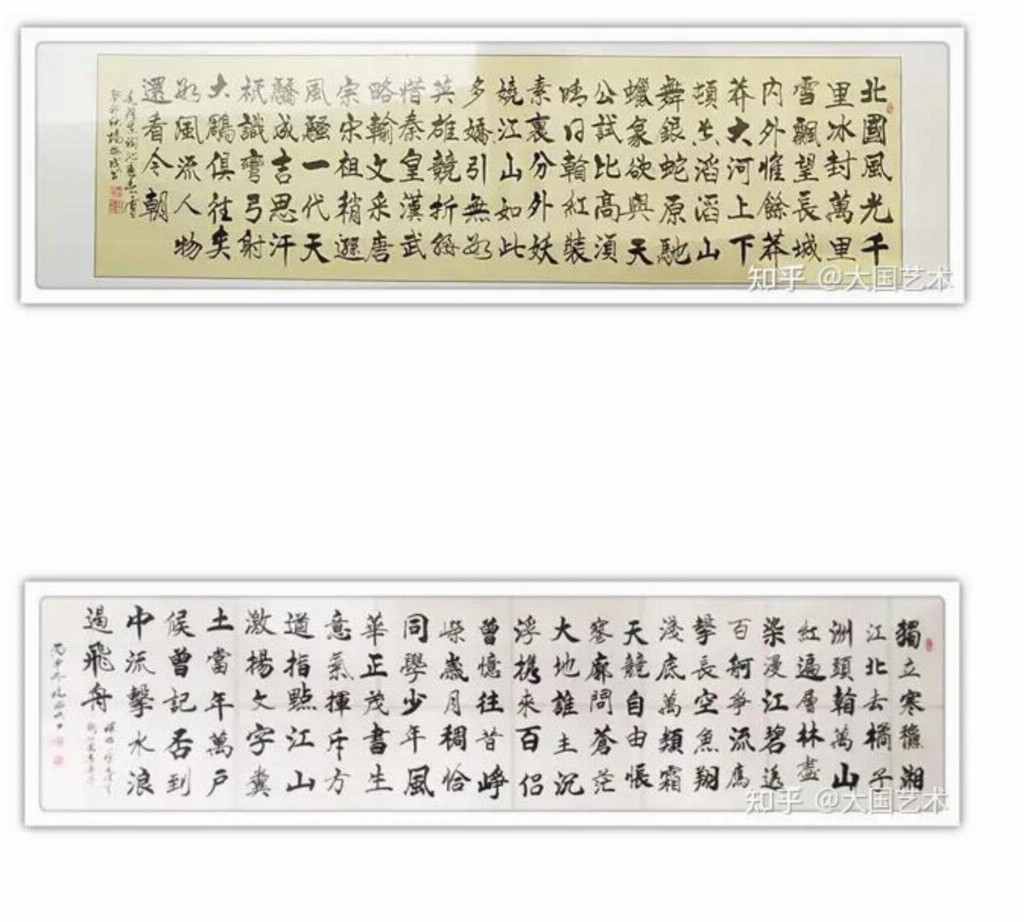 北國風光千
里冰封萬里
雪飄望長城
内外惟餘莽
莽大河上下
頓失滔滔山
舞銀蛇原馳
蠟象欲與天
公試比高須
晴日翰紅裝
素裹分外妖
嬈江山如此
多嬌引無數
英雄競折腰
惜秦皇漢武
略輸文采唐
宗宋祖稍遜
風騷一代天
驕成吉思汗
祇識彎弓射
大鵰俱往矣
数風流人物
還看今朝
知乎 @大国艺术
獨立寒穐湘
江北去橘子
洲頭翰萬山
紅遍層林盡
染漫江碧透
百舸争流鷹
擊長空魚翔
淺底萬類霜
天競自由悵
寥廓問蒼茫
大地誰主沉
浮携來百侣
曾憶往昔崢
嶸歲月稠恰
同學少年風
華正茂書生
意氣揮斥方
道指點江山
激揚文字糞
土當年萬户
候曾記否到
中流擊水浪
遏飛舟
知乎 @大国艺术